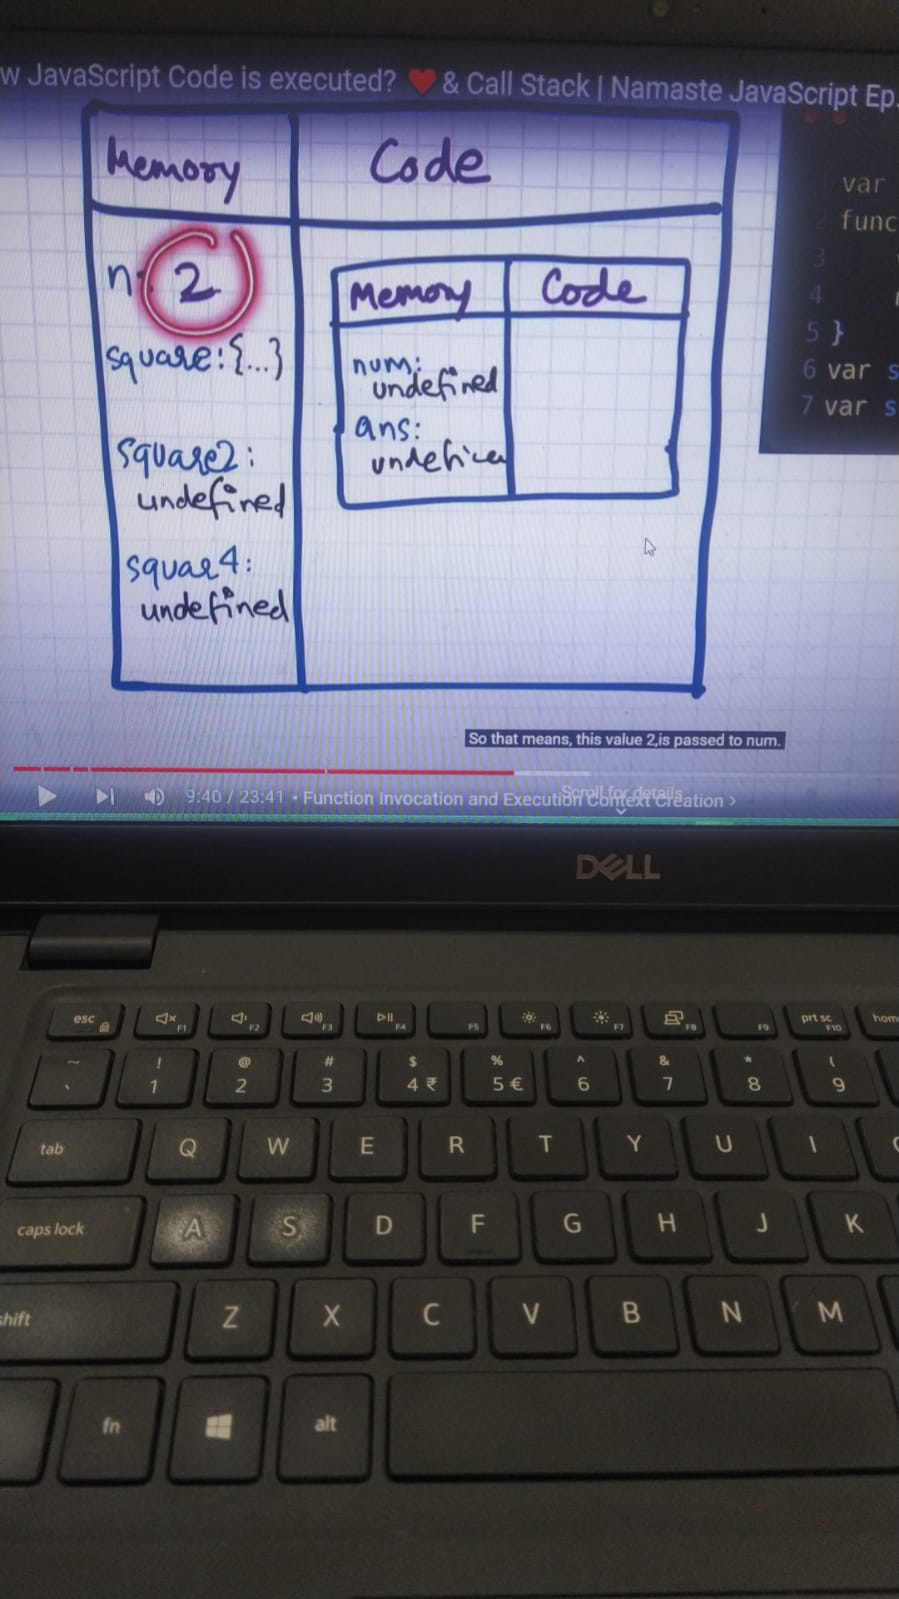 w JavaScript Code is executed? ❤️ & Call Stack | Namaste JavaScript Ep.
Memory Code
n: 2
square: {...}
square2:
undefined
squar4:
undefined
Memory Code
num:
undefined
ans:
var
func
3
4
5 }
6 var s
7 var s
So that means, this value 2,is passed to num.
9:40 / 23:41 • Function Invocation and Execution Context Creation >
Scroll for details
DELL
esc F1 F2 F3 F4 F5 F6 F7 F8 F9 prt sc F10 hom
~ ` ! 1 @ 2 # 3 $ 4 ₹ % 5 € ^ 6 & 7 * 8 ( 9
tab Q W E R T Y U I
caps lock A S D F G H J K
shift Z X C V B N M
fn alt